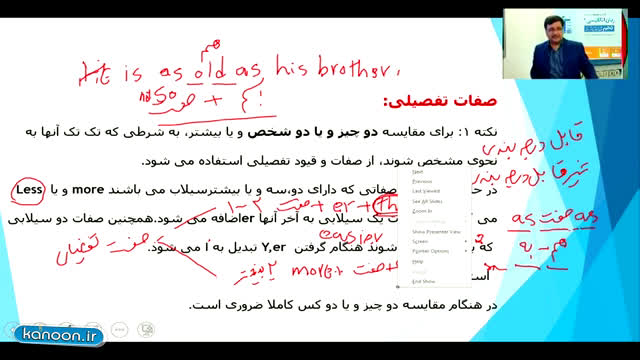 هم
He is as old as his brother.
not so + صفت
صفات تفضیلی:
قابل درجه بندی
نکته ۱: برای مقایسه دو چیز و یا دو شخص و یا بیشتر، به شرطی که تک تک آنها به
نحوی مشخص شوند، از صفات و قیود تفضیلی استفاده می شود.
غیر قابل درجه بندی
صفاتی که دارای دو،سه و یا بیشترسیلاب می باشند more و یا Less
۱-۲ صفت + er + th
as صفت as
یک سیلابی به آخر آنها erاضافه می شود.همچنین صفات دو سیلابی
easier
صفت تفضیلی
به
هم
شوند هنگام گرفتن Y,er تبدیل به I می شود.
۲ بیشتر more + صفت +
در هنگام مقایسه دو چیز و یا دو کس کاملا ضروری است.
Next
Previous
Last Viewed
See All Slides
Zoom In
Show Presenter View
Screen
Pointer Options
Help
End Show
kanoon.ir